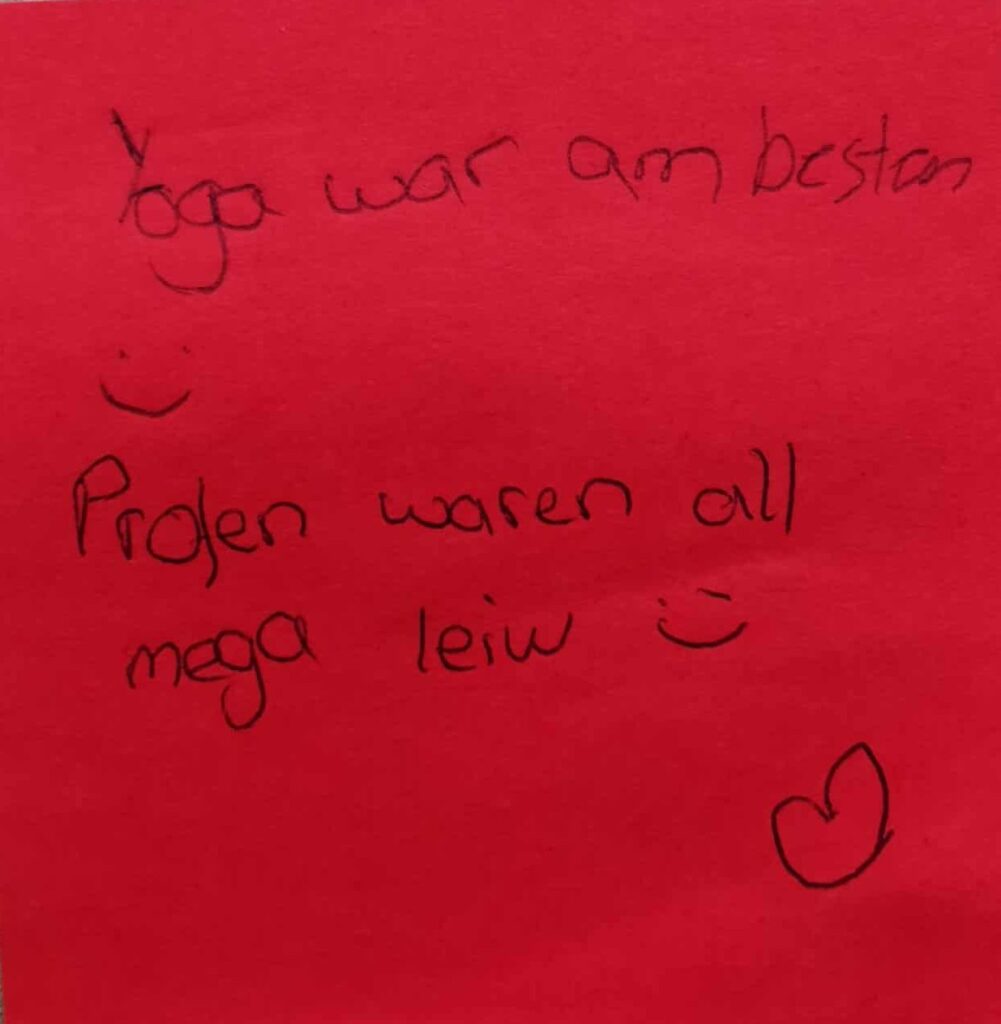 Yoga war am besten
:)
Profen waren all
mega leiw :)
♡